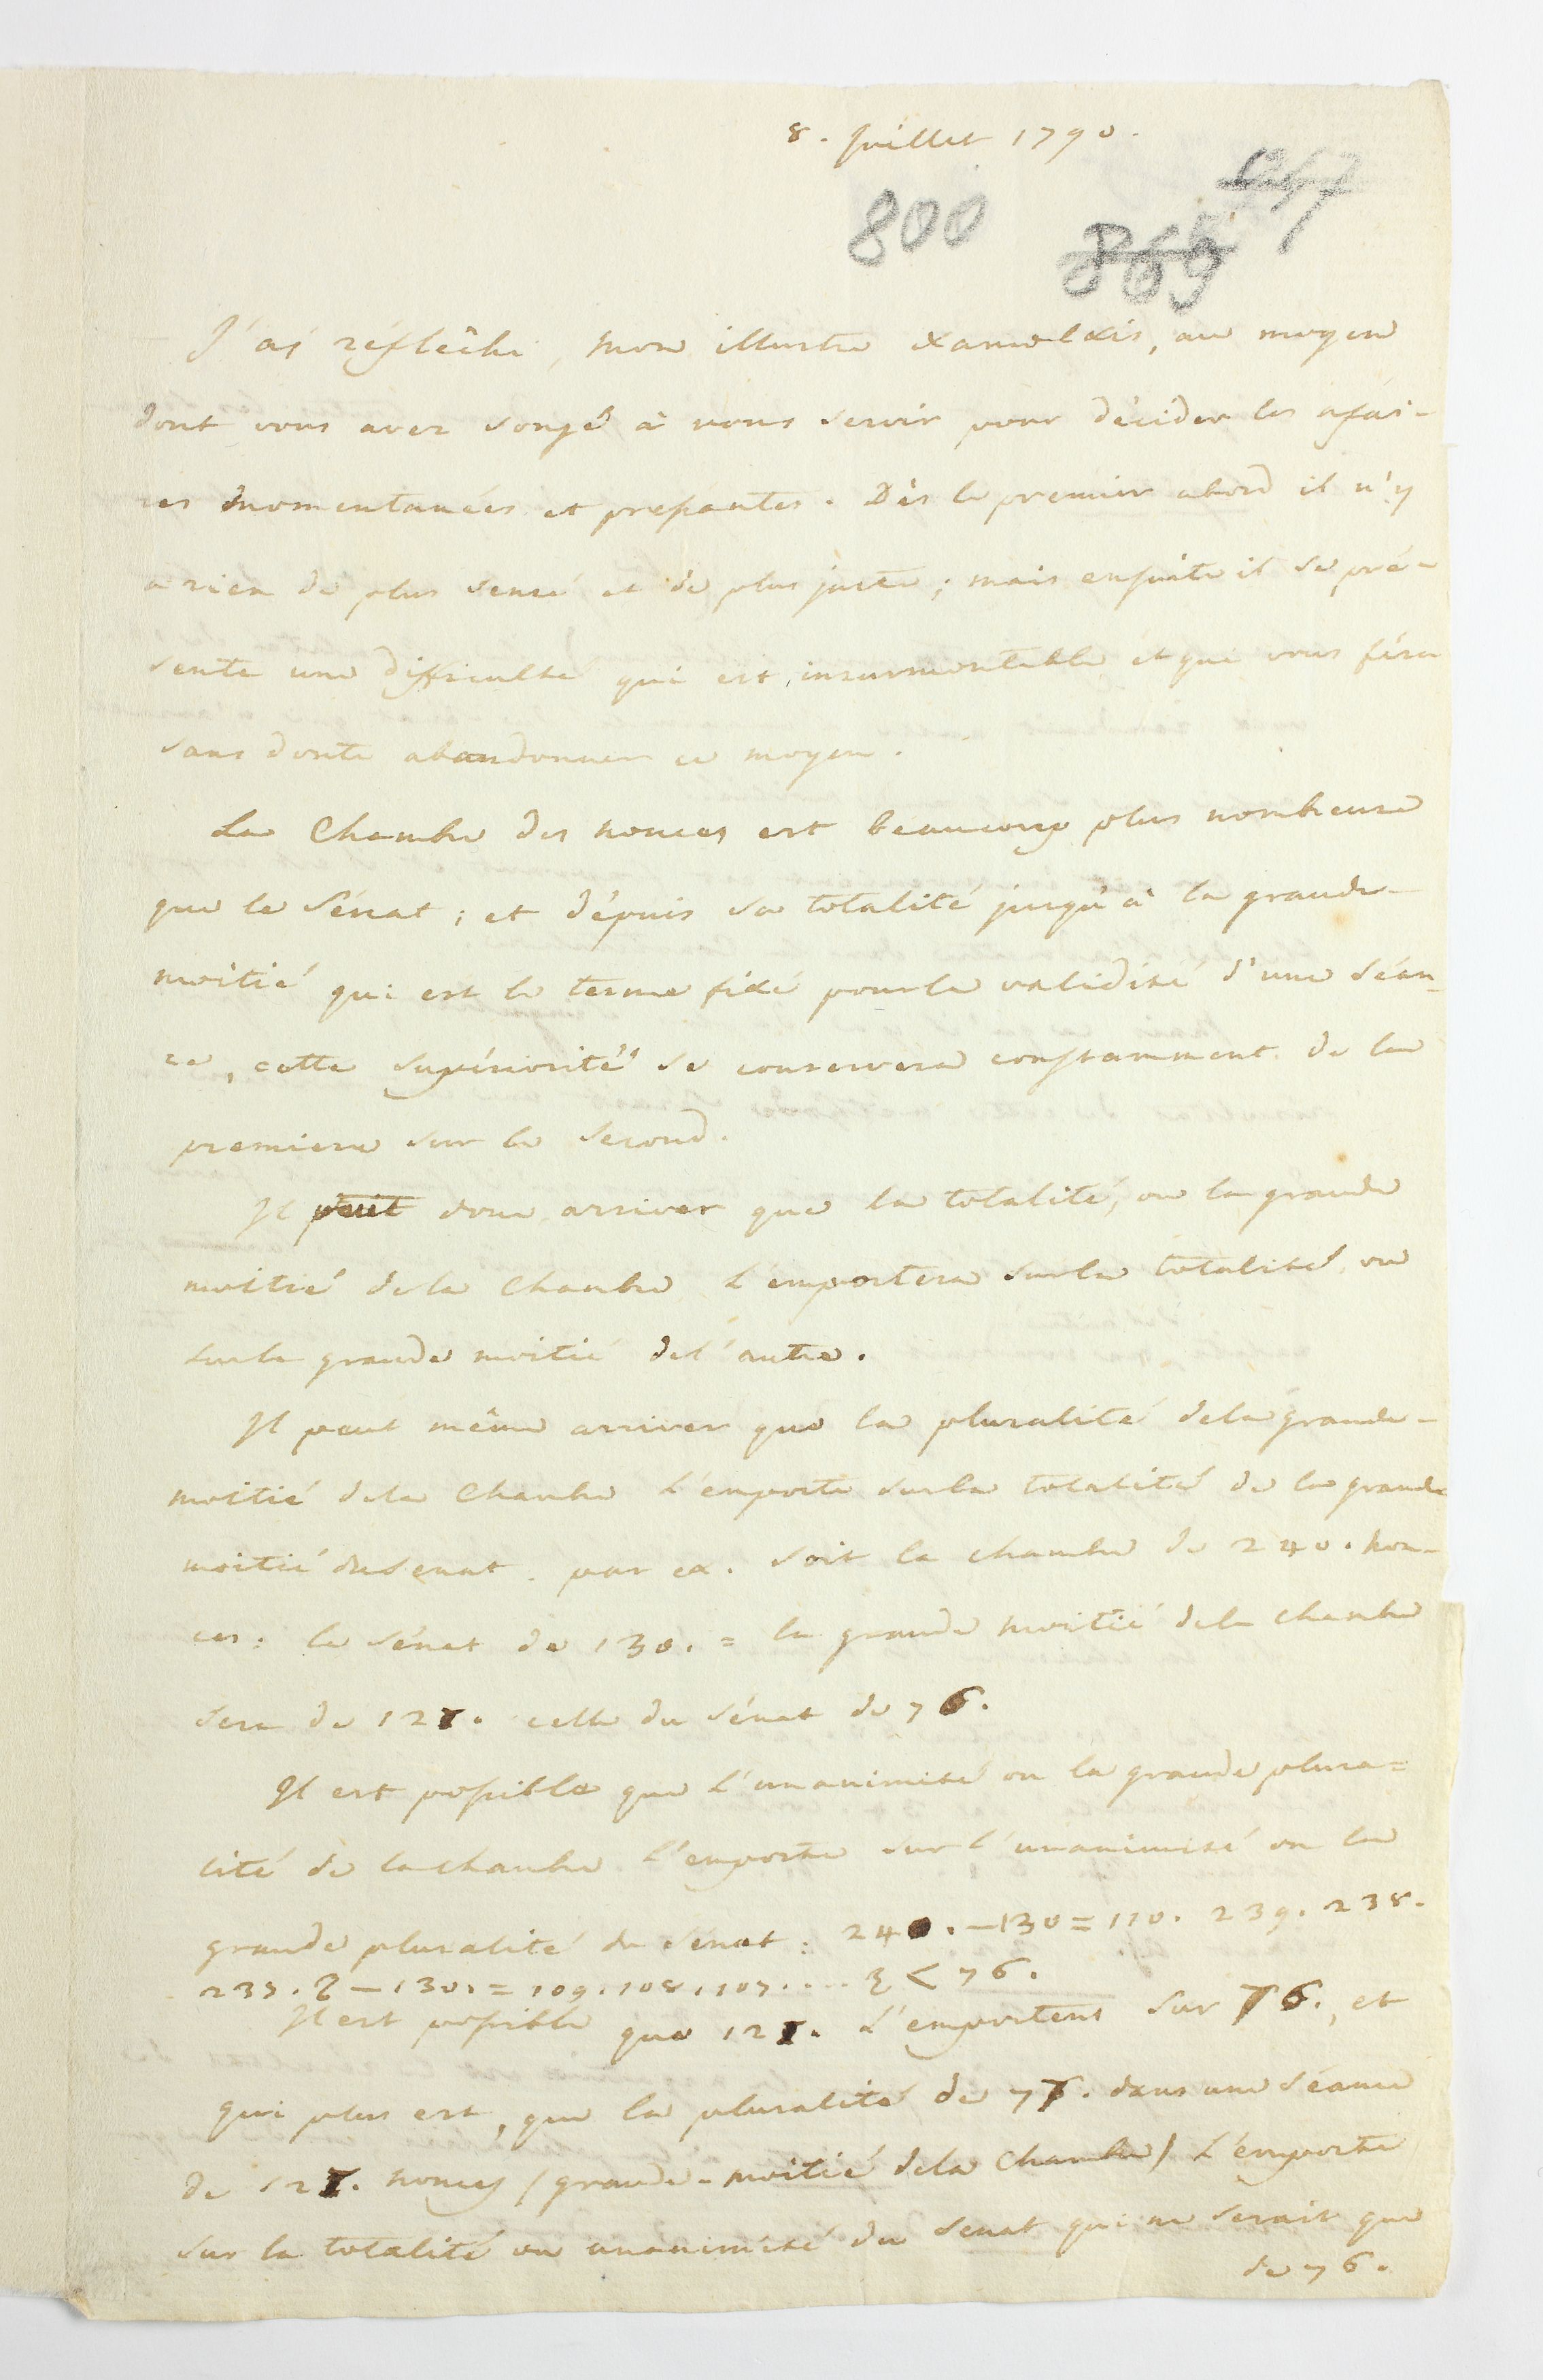 8. Juillet 1790.
800
J'ai réflêchi, mon illustre, au moyen
dont vous avez songé à vous servir pour décider les afai-
res momentanées et pressantes. Dès le premier abord il n'y
a rien de plus sensé et de plus juste; mais ensuite il se pré-
sente une difficulté qui est insurmontable et qui vous féra
sans doute abandonner ce moyen.
La Chambre des nonces est beaucoup plus nombreuse
que le Sénat; et dépuis sa totalité jusqu'à la grande-
moitié qui est le terme fixé pour la validité d'une séan-
ce, cette supériorité se conservera constamment de la
premiere sur le second.
Il peut donc arriver que la totalité, ou la grande
moitié de la Chambre l'emportera sur la totalité ou
sur la grande moitié de l'autre.
Il peut même arriver que la pluralité de la grande-
moitié de la Chambre l'emporte sur la totalité de la grande
moitié du Senat. par ex. soit la chambre de 240. non-
ces: le sénat de 130. = la grande moitié de la chambre
sera de 121. celle du sénat de 76.
Il est possible que l'unanimité ou la grande plura=
lité de la chambre l'emporte sur l'unanimité ou la
grande pluralité du sénat: 240. — 130 = 110. 239. 238.
237. — 130. = 109. 108. 107. .... < 76.
Il est possible que 121. l'emportent sur 76., et
qui plus est, que la pluralité de 77. dans une séance
de 121. nonces / grande-moitié de la Chambre / l'emporte
sur la totalité ou unanimité du Senat qui ne serait que
de 76.